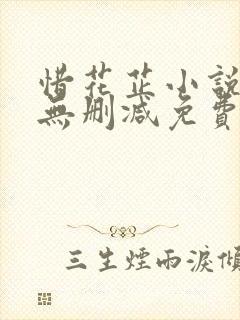 惜花芷小說
無刪減免費
三生煙雨淚傾